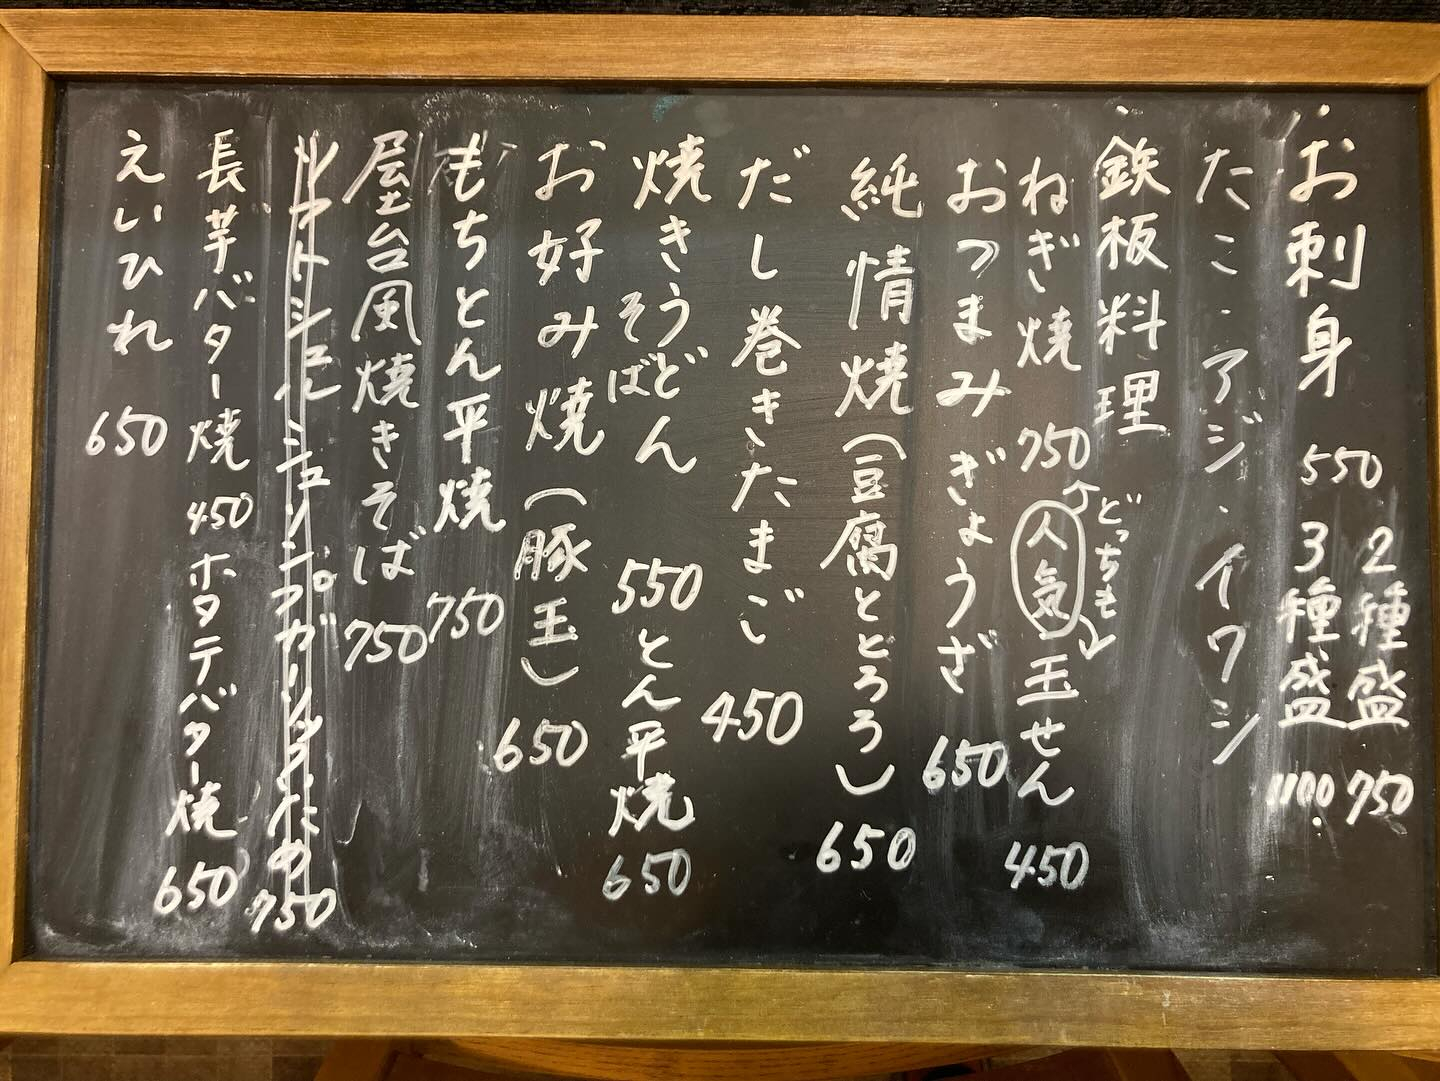 ・お刺身 550 2種盛 750
3種盛 1100
たこ・アジ・イワシ
・鉄板料理
ねぎ焼 750 人気 どっちも 玉せん 450
おつまみぎょうざ 650
純情焼(豆腐ととろろ) 650
だし巻きたまご 450
焼きうどん
そば 550 とん平焼 650
お好み焼(豚玉) 650
もちとん平焼 750
屋台風焼きそば 750
ソフトシェルシュリンプガーリックいため 750
長芋バター焼 450 ホタテバター焼 650
えいひれ 650